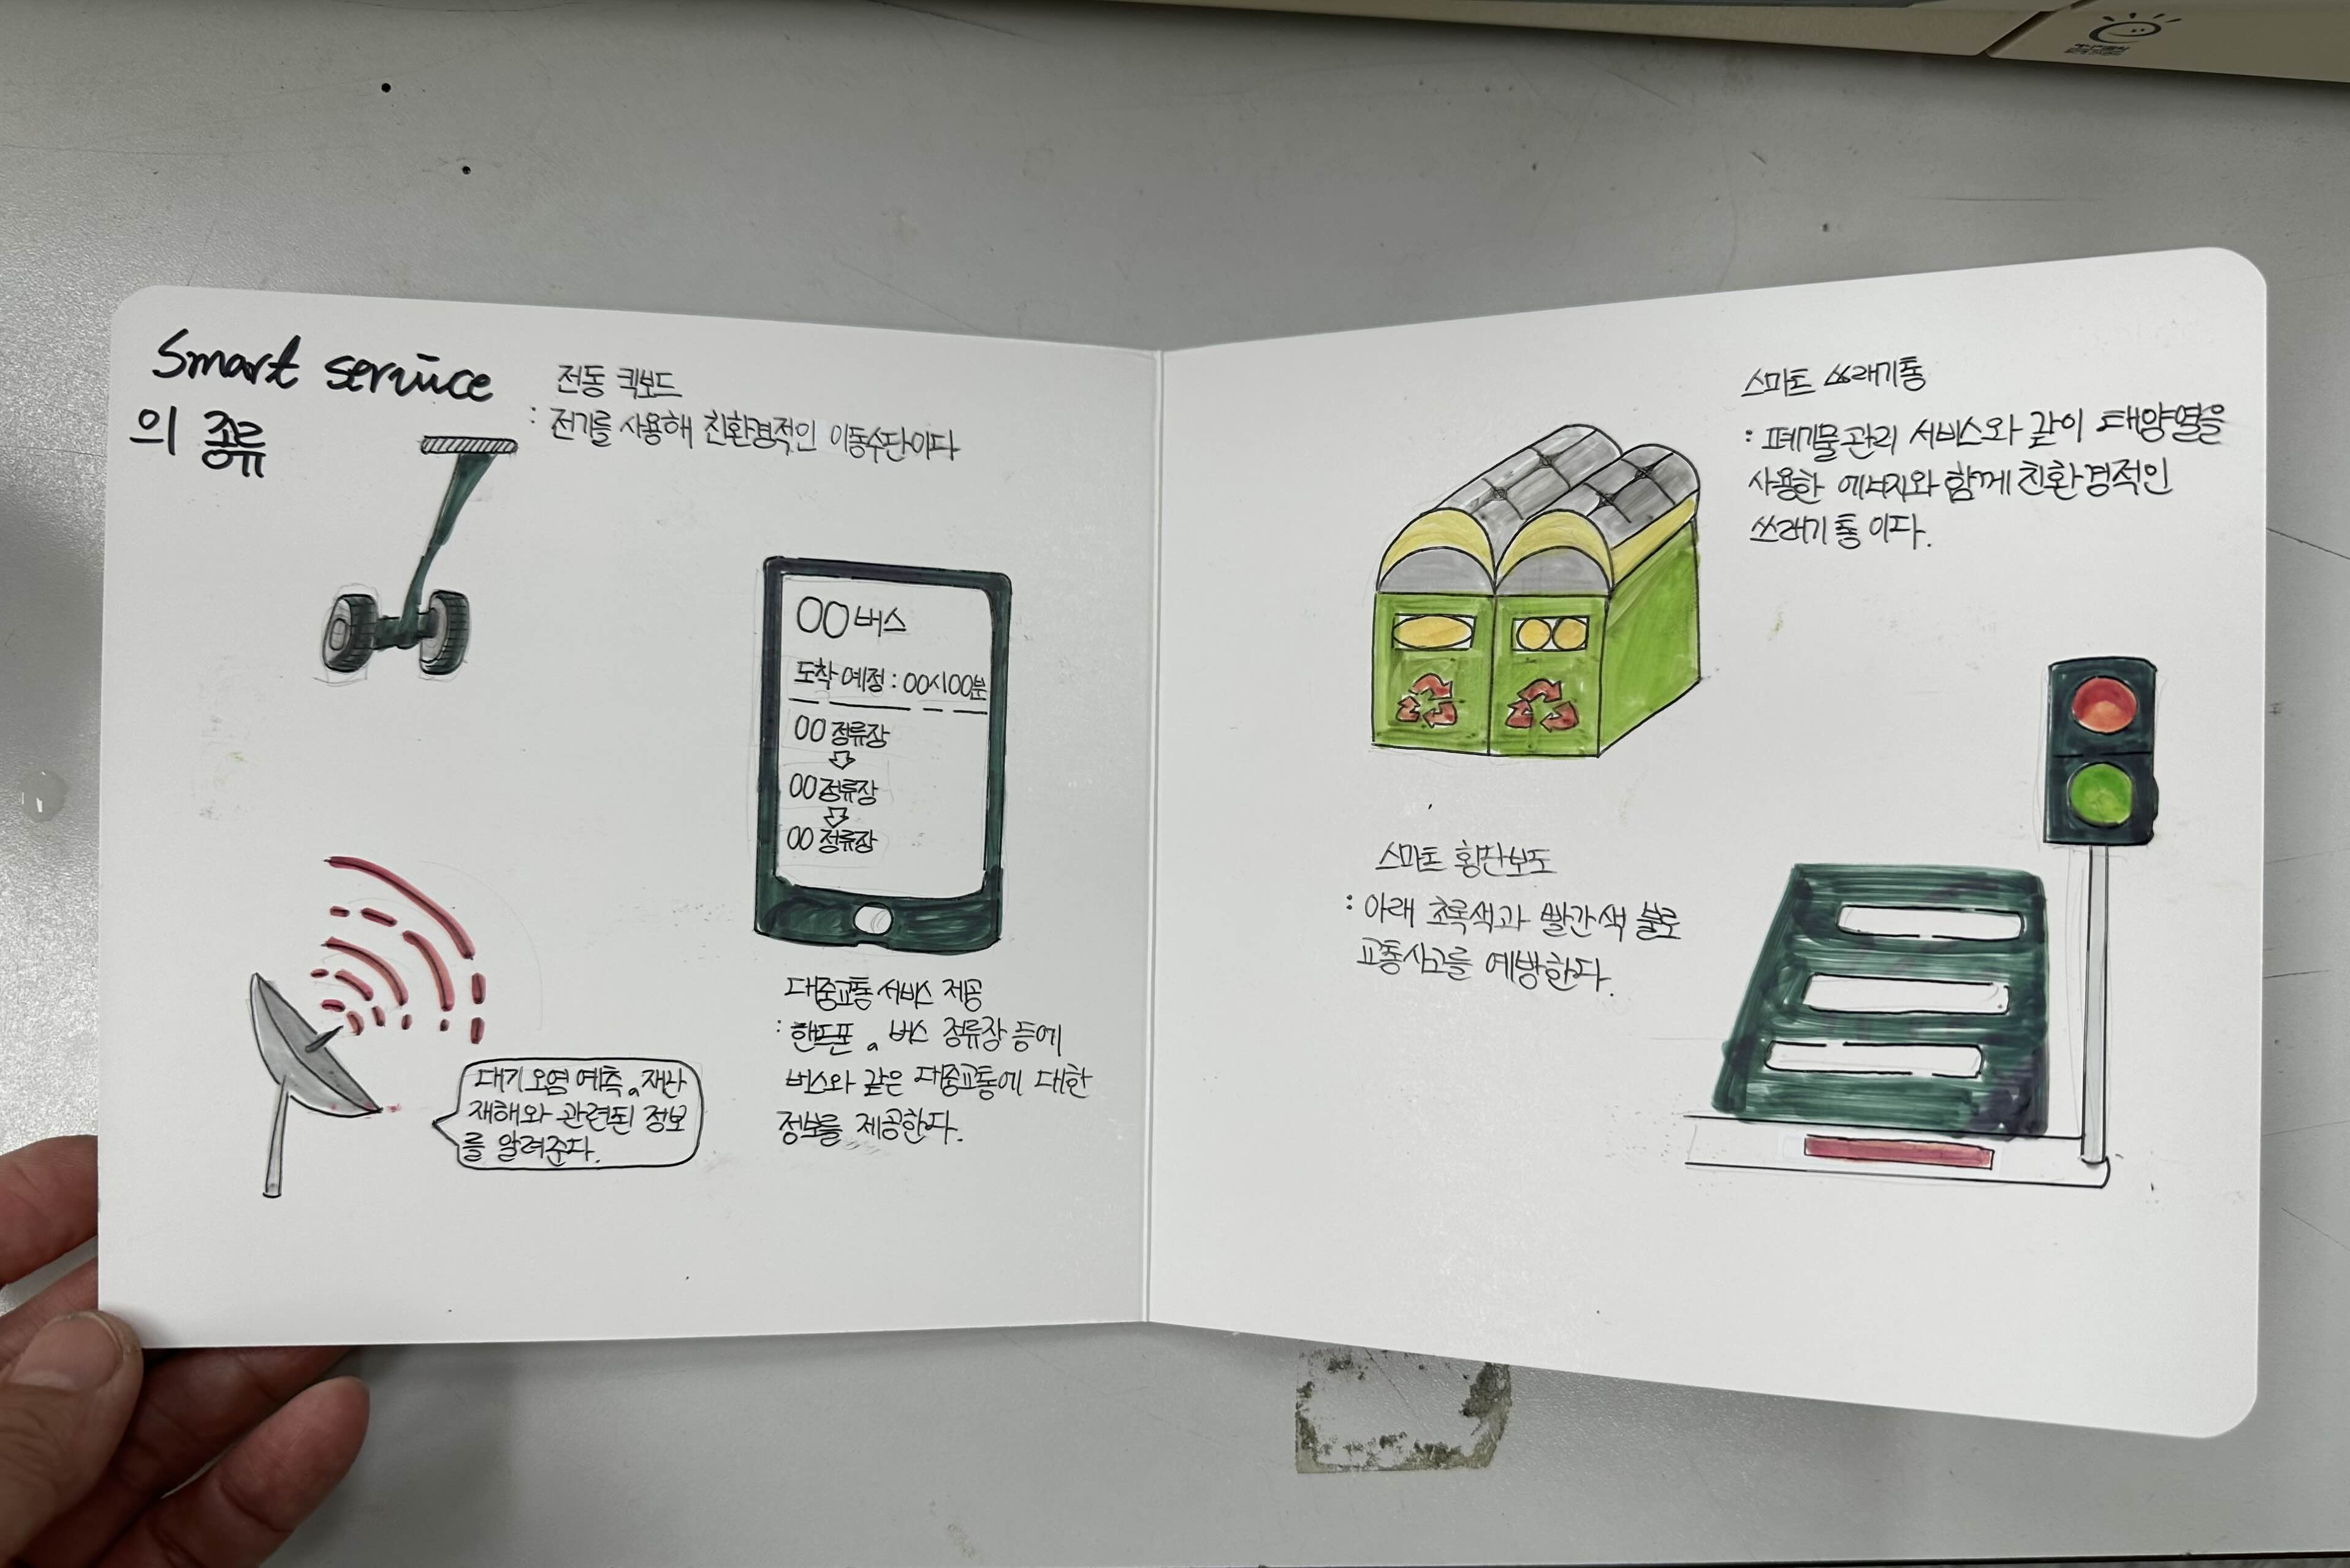 Smart service
의 종류
전동 킥보드
: 전기를 사용해 친환경적인 이동수단이다
00버스
도착 예정 : 00시00분
00 정류장
00정류장
00 정류장
대중교통 서비스 제공
: 핸드폰, 버스 정류장 등에
버스와 같은 대중교통에 대한
정보를 제공한다.
대기오염 예측, 재난
재해와 관련된 정보
를 알려준다.
스마트 쓰래기통
: 폐기물관리 서비스와 같이 태양열을
사용한 에너지와 함께 친환경적인
쓰래기통이다.
스마트 횡단보도
: 아래 초록색과 빨간색 불로
교통사고를 예방한다.